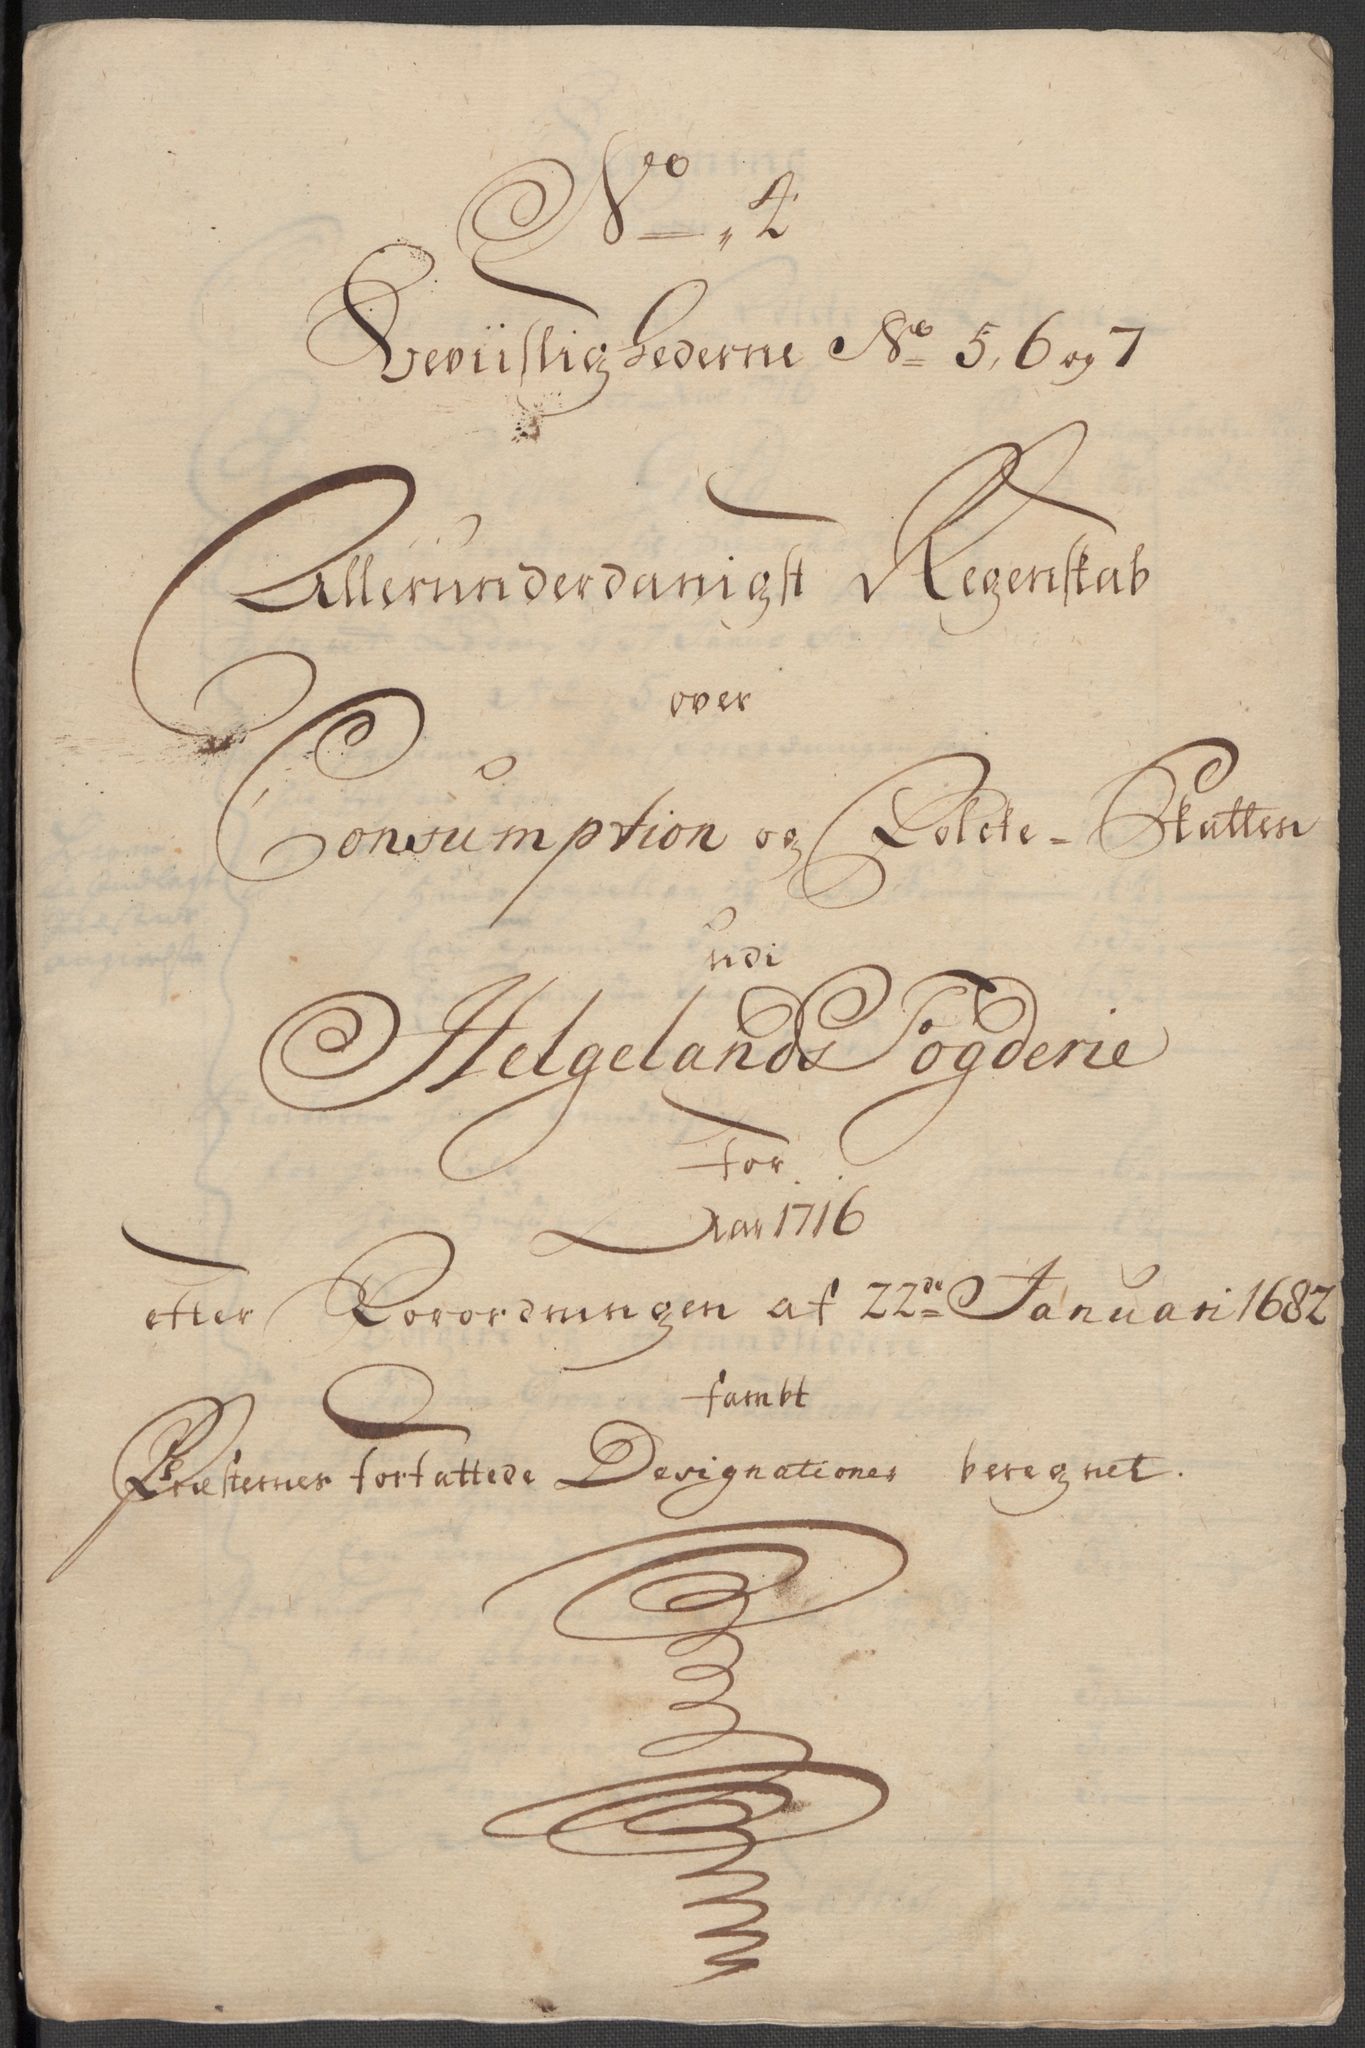 No 4
Beviisligheederne No 5, 6 og 7
Allerunderdanigst Regenskab
over
Consumption og Folcke-Skatten
udi
Helgelands Fogderie
for
Aar 1716
efter Forordningen af 22de Januari 1682
sambt
Præsternes forfattede Designationer beregnet.